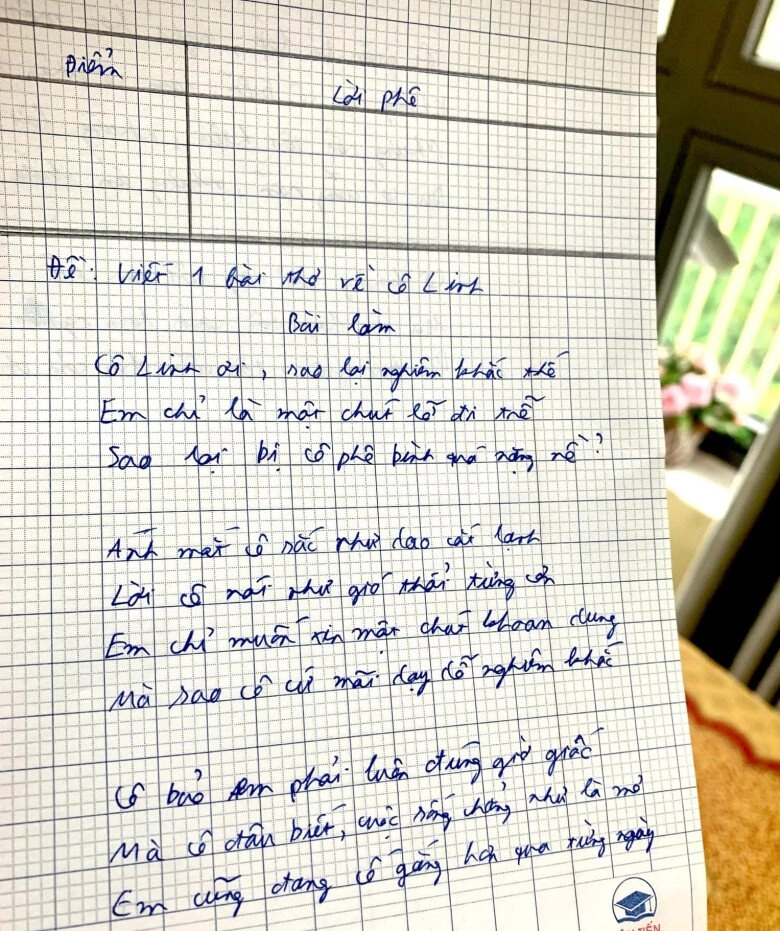 Điểm
Lời phê
Đề: Viết 1 bài thơ về cô Linh
Bài làm
Cô Linh ơi, sao lại nghiêm khắc thế
Em chỉ là một chút lỡ đi trễ
Sao lại bị cô phê bình quá nặng nề?
Ánh mắt cô sắc như dao cắt lạnh
Lời cô nói như gió thổi từng cơn
Em chỉ muốn xin một chút khoan dung
Mà sao cô cứ mãi dạy dỗ nghiêm khắc
Cô bảo em phải luôn đúng giờ giấc
Mà cô đâu biết, cuộc sống chẳng như là mơ
Em cũng đang cố gắng hơn qua từng ngày
TIẾN